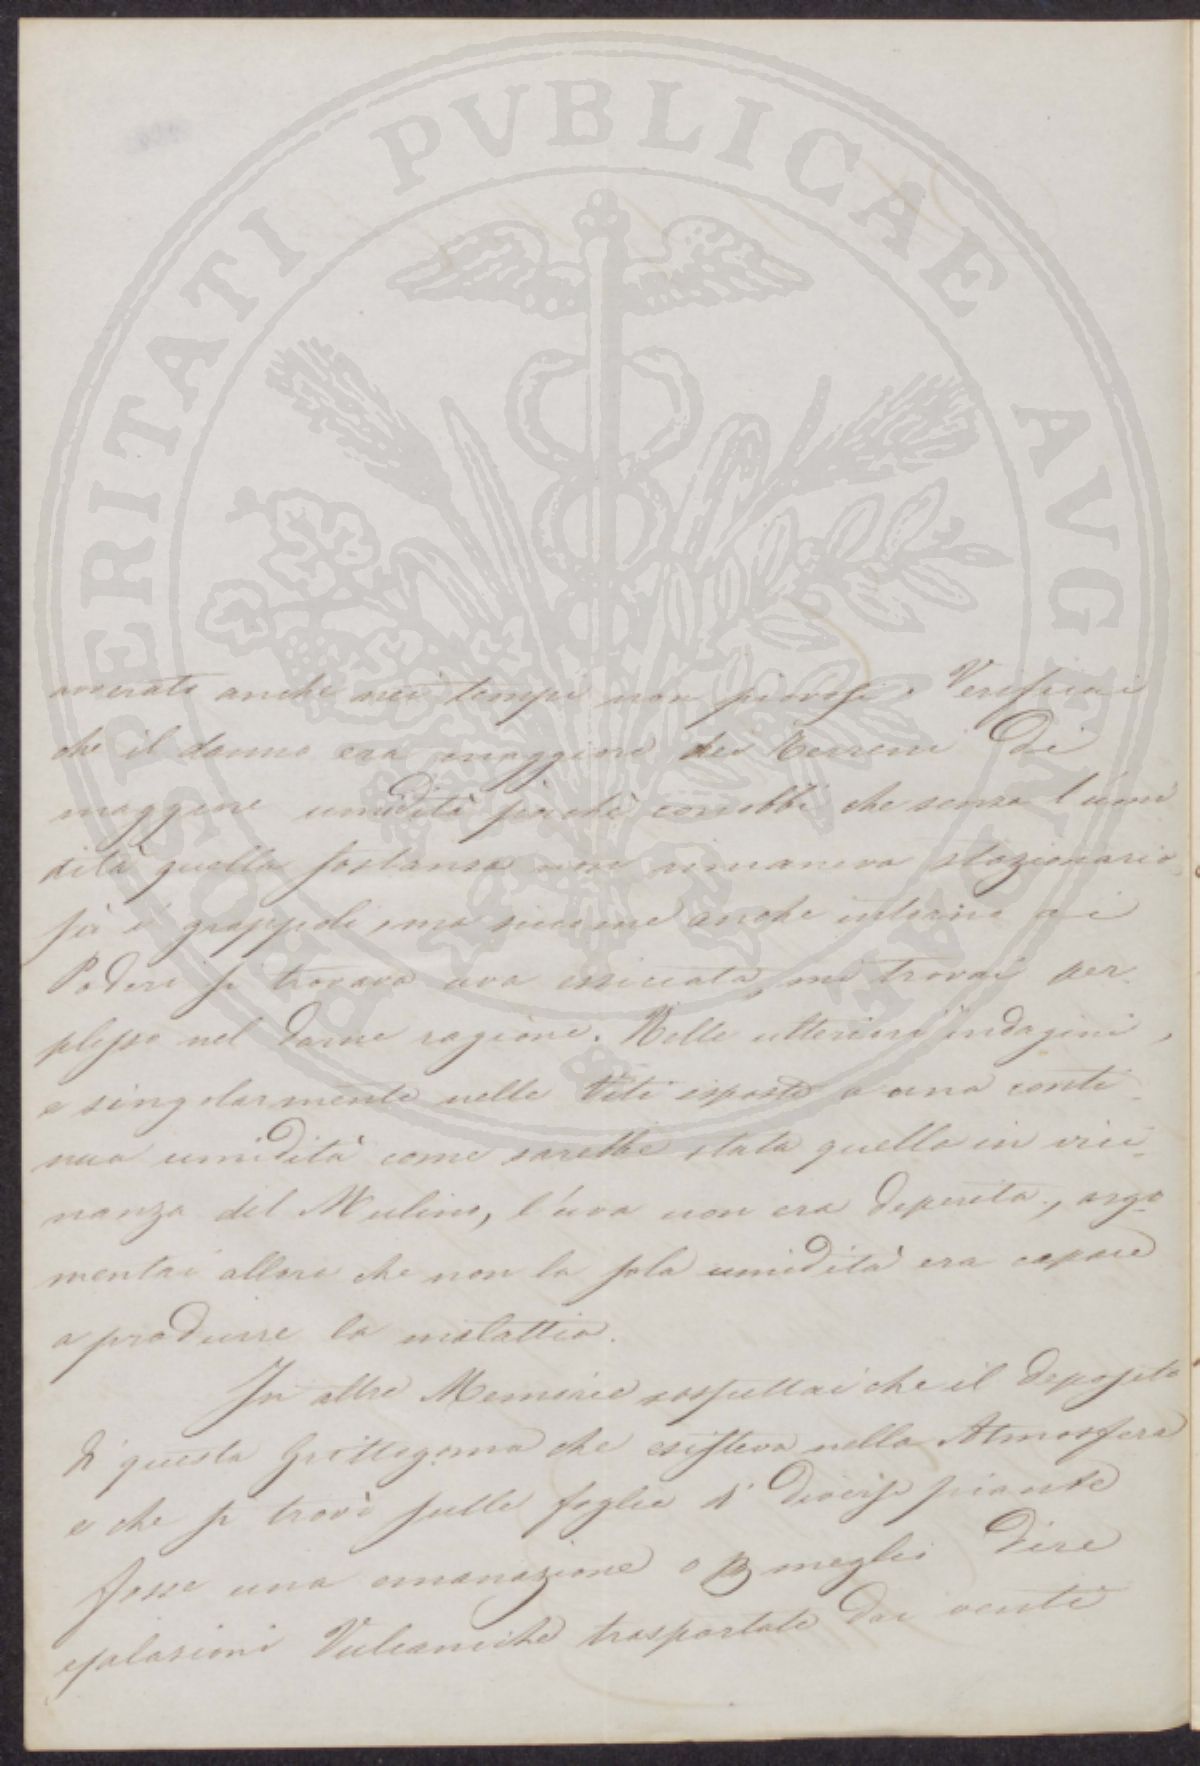 PROSPERITATI PVBLICAE AVGENDAE
avverato anche nei tempi non piovosi. Verificai
che il danno era maggiore dei Terreni di
maggiore umidità perchè conobbi che senza l'umi
dità quella sostanza non rimaneva stazionaria
fra i grappoli, ma siccome anche intorno ai
Poderi si trovava uva essiccata, mi trovai per
plesso nel darne ragione. Nelle ulteriori indagini,
e singolarmente nelle Viti esposte a una conti
nua umidità come sarebbe stata quella in vici
nanza del Mulino, l'uva non era deperita, argo
mentai allora che non la sola umidità era capace
a produrre la malattia.
In altre Memorie sospettai che il deposito
di questa Crittogama che esisteva nella Atmosfera
e che si trovò sulle foglie di diverse piante
fosse una emanazione o meglio dire
esalazioni Vulcaniche trasportate dai venti